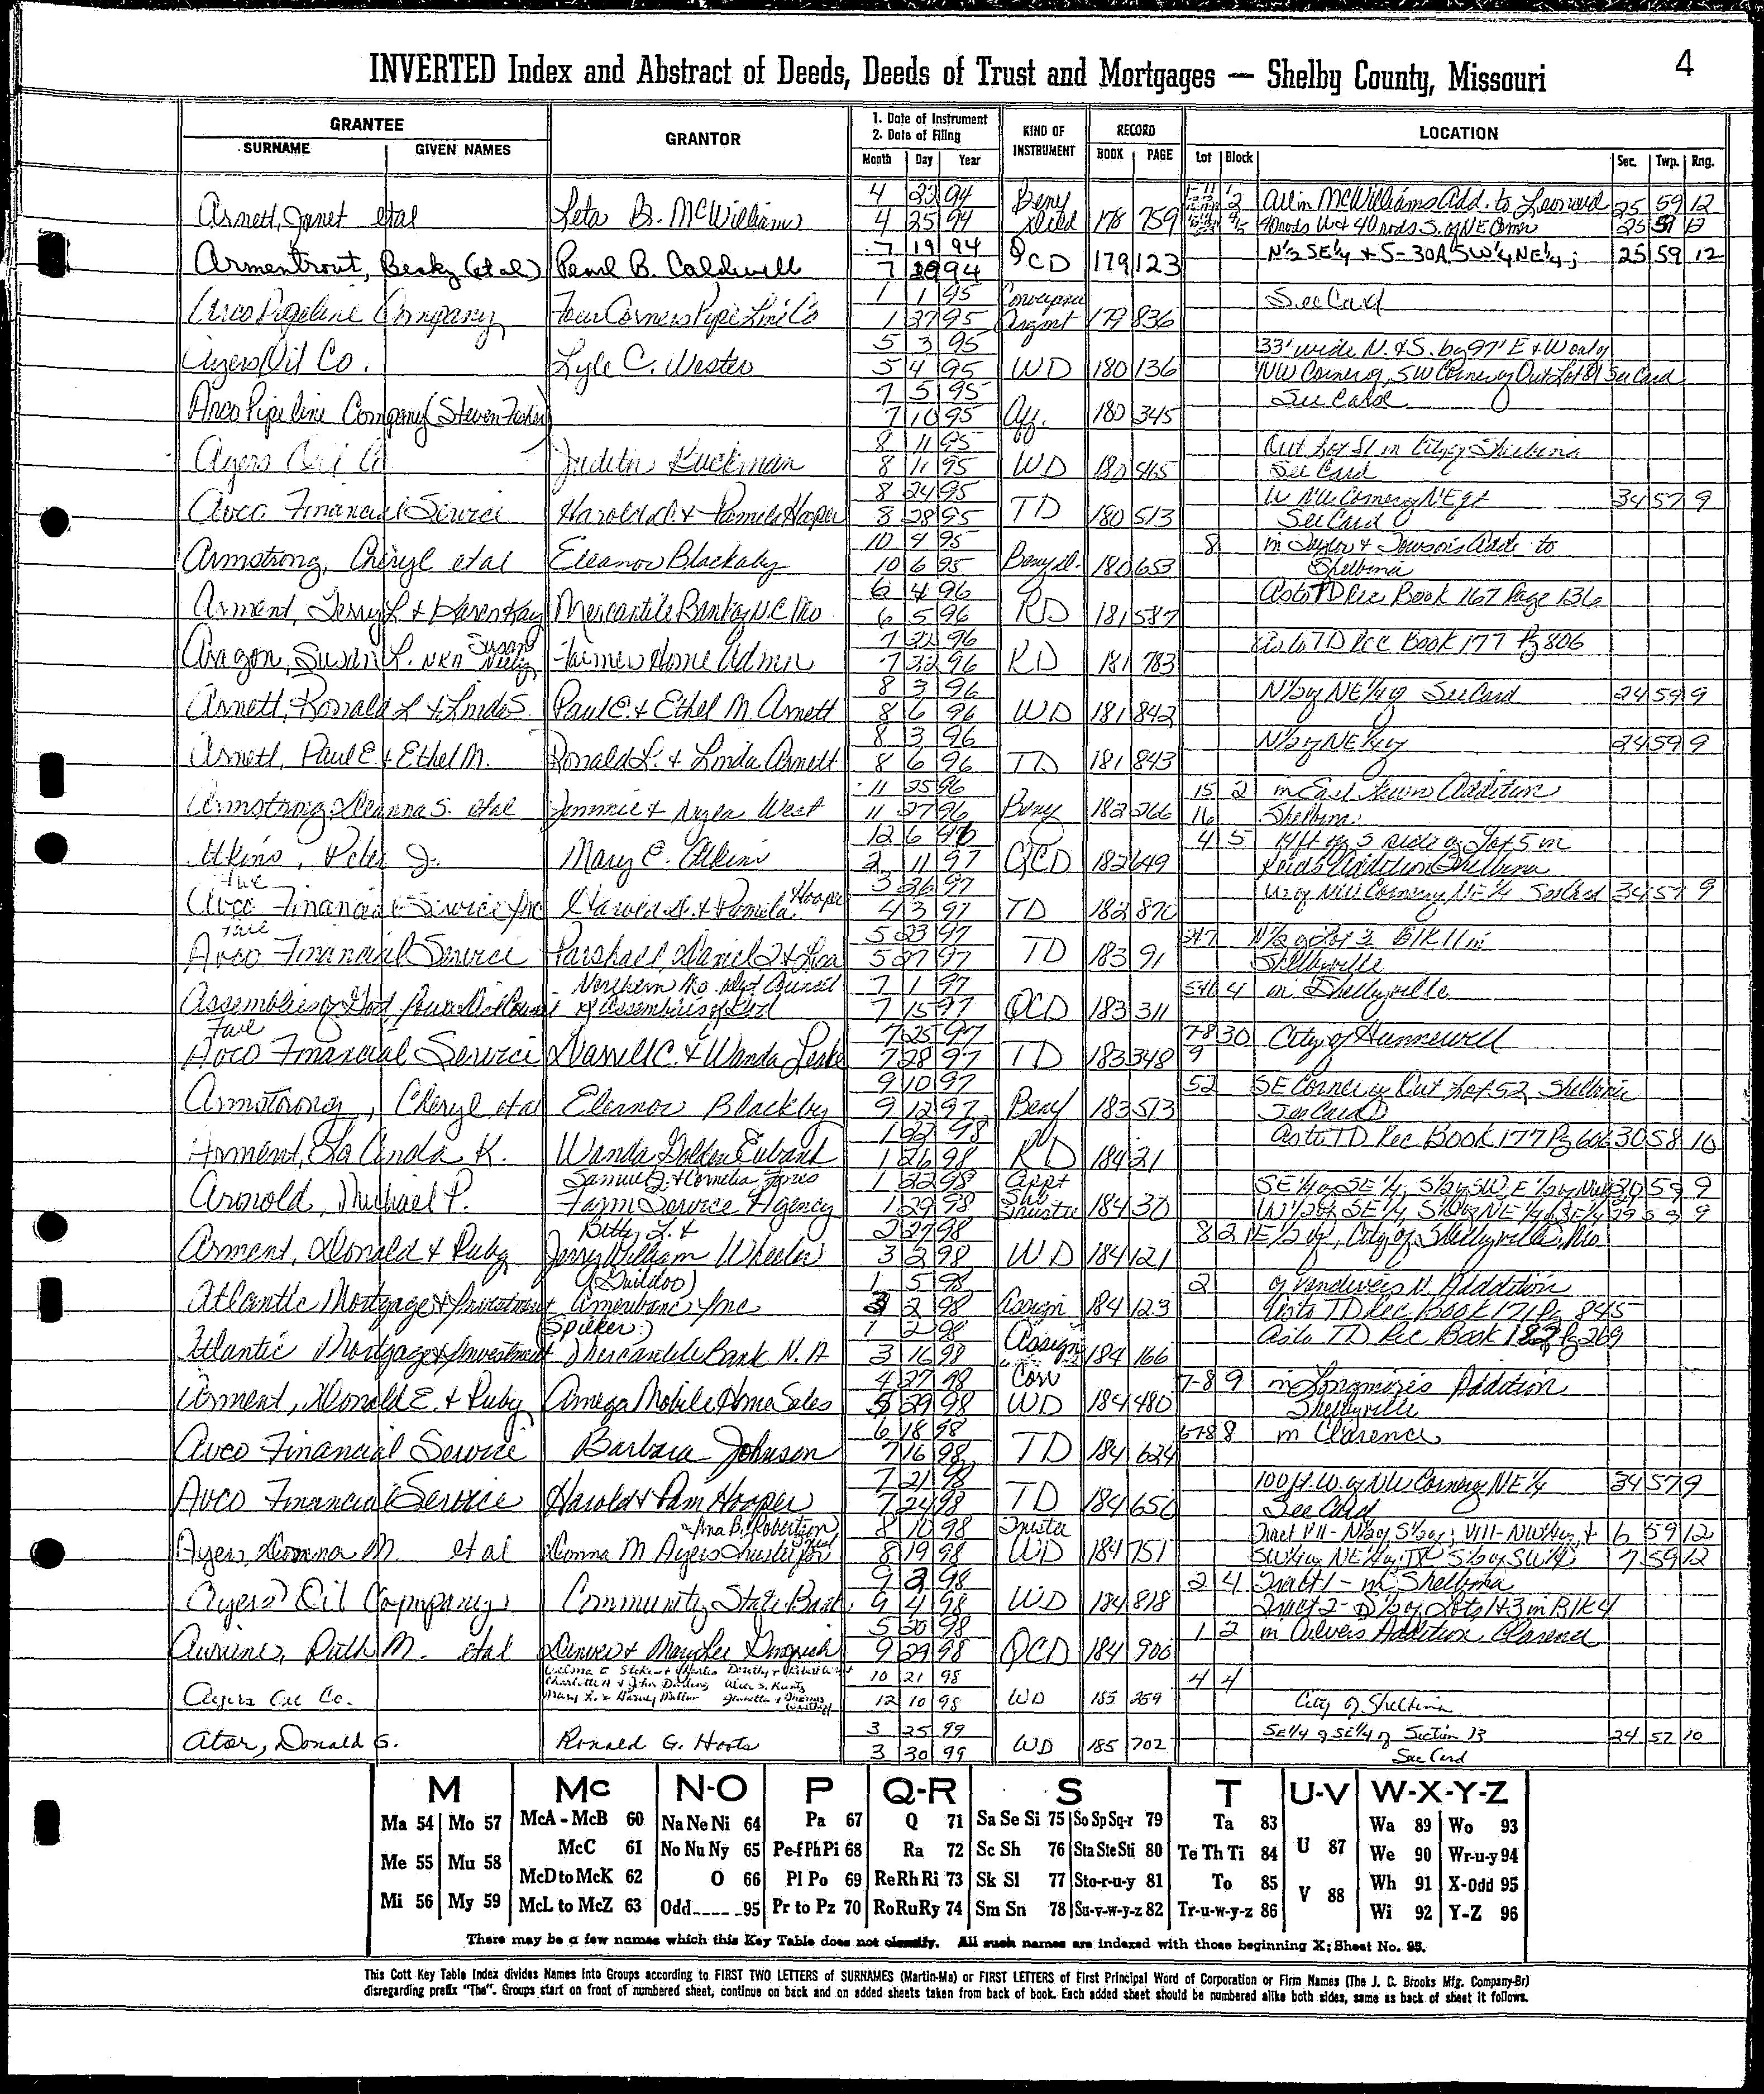 4
INVERTED Index and Abstract of Deeds, Deeds of Trust and Mortgages — Shelby County, Missouri
GRANTEE
SURNAME GIVEN NAMES
GRANTOR
1. Date of Instrument
2. Date of Filing
Month Day Year
KIND OF INSTRUMENT
RECORD
BOOK PAGE
Lot Block
LOCATION
Sec. Twp. Rng.
Arnett, Janet etal Leta B. McWilliams 4 22 94 Beny Deed 178 759 2 All in McWilliams Add. to Leonard 25 59 12
4 25 94 40 rods W & 40 rods S. of NE Corner 25 59 12
Armentrout, Becky (et al) Pearl B. Caldwell 7 19 94 QCD 179 123 N½ SE¼ & S-30A SW¼ NE¼; 25 59 12
7 29 94
Arco Pipeline Company Four Corners Pipe Line Co 1 1 95 179 836 See Card
1 27 95
Ayers Oil Co. Lyle C. Wester 5 3 95 WD 180 136 33' wide N. & S. by 97' E & W only
5 4 95 NW Corner of SW Corner of Out Lot 81 See Card
Arco Pipe line Company (Steven Fisher) 7 5 95 Aff. 180 345 See Card
7 10 95
Ayers Oil Co Judith Kuckman 8 11 95 WD 180 465 Out Lot 81 in City of Shelbina
8 11 95 See Card
Avco Financial Service Harold D. & Pamela Hooper 8 24 95 TD 180 513 W NW Corner of NE¼ 34 57 9
8 28 95 See Card
Armstrong, Cheryl etal Eleanor Blackaby 10 4 95 Beny D. 180 653 8 in Taylor & Towson's Add. to
10 6 95 Shelbina
Arment, Terry L & Karen Kay Mercantile Bank of N.C. Mo 6 4 96 RD 181 587 As to TD Rec Book 167 Page 136
6 5 96
Aragon, Susan L. NKA Susan Farmers Home Admn 7 22 96 RD 181 783 As to TD Rec Book 177 Pg 806
7 22 96
Arnett, Ronald L & Linda S. Paul E. & Ethel M. Arnett 8 3 96 WD 181 842 N½ of NE¼ of See Card 24 59 9
8 6 96
Arnett, Paul E. & Ethel M. Ronald L. & Linda Arnett 8 3 96 TD 181 843 N½ of NE¼ of 24 59 9
8 6 96
Armstrong, Deanna S. etal Jimmie & Nyla West 11 25 96 Beny 182 266 15 2 in East Lawn Addition
11 27 96 16 Shelbina
Atkins, Peter J. Mary E. Atkins 12 6 96 QCD 182 649 4 5 ft of S side of Lot 5 in
2 11 97 Addition Shelbina
Avco Financial Service Inc Harold D. & Pamela Hooper 3 26 97 TD 182 870 W of NW Corner of NE¼ See Card 34 57 9
4 3 97
Avco Financial Service Parshall, Daniel J & Lisa 5 23 97 TD 183 91 N½ of Lot 3 Blk 11 in
5 27 97 Shelbyville
Assemblies of God Northern Mo. Dist Council 7 1 97 QCD 183 311 4 in Shelbyville
of Assemblies of God 7 15 97
Avco Financial Service Darrell C. & Wanda Leake 7 25 97 TD 183 348 7-8 30 City of Hunnewell
7 28 97 9
Armstrong, Cheryl etal Eleanor Blackby 9 10 97 Beny 183 513 52 SE Corner of Out Lot 52, Shelbina
9 12 97 See Card
Arment, La Anda K. Wanda Golden Eubank 1 22 98 RD 184 21 As to TD Rec Book 177 Pg 606 30 58 10
1 26 98
Arnold, Michael P. Samuel J. & Cornelia Jones 1 22 98 Appt 184 30 SE¼ of SE¼, S½ of SW, E½ of NW¼ 30 59 9
Farm Service Agency 1 29 98 Trustee W½ of SE¼, S½ of NE¼ of SE¼ 29 59 9
Arment, Donald & Ruby Betty L. & 2 27 98 WD 184 121 8 2 E½ of, City of Shelbyville, Mo.
Jerry William Wheeler 3 2 98
Atlantic Mortgage & Investment Ameribanc Inc 1 5 98 Assign 184 123 2 of Vandivers N. Addition
3 2 98 As to TD Rec Book 171 Pg 845
Atlantic Mortgage & Investment (Spilker) 1 2 98 Assign 184 166 As to TD Rec Book 182 Pg 269
Mercantile Bank N.A 3 16 98
Arment, Donald E. & Ruby Omega Mobile Home Sales 4 27 98 Corr WD 184 480 7-8 9 in Longmire's Addition
5 29 98 Shelbyville
Avco Financial Service Barbara Johnson 6 18 98 TD 184 624 6-7-8 8 in Clarence
7 16 98
Avco Financial Service Harold & Pam Hooper 7 21 98 TD 184 650 100 ft. W. of NW Corner of NE¼ 34 57 9
7 24 98 See Card
Ayers, Donna M et al Ina B. Robertson 8 10 98 Trustee WD 184 751 Tract VII - N½ of S½ of; VIII - NW¼ of, & 6 59 12
Donna M Ayers Trustee for 8 19 98 SW¼ of NE¼ of; IX S½ of SW¼ 7 59 12
Ayers Oil Company Community State Bank 9 2 98 WD 184 818 2 4 Tract 1 - in Shelbina
9 4 98 Tract 2 - S½ of Lots 1 & 3 in Blk 4
Ruth M. etal Denver & Mary Lee Gingrich 5 30 98 QCD 184 900 1 2 in Culvers Addition, Clarence
9 29 98
Ayers Oil Co. 10 21 98 WD 185 259 4 4 City of Shelbina
12 10 98
Ator, Donald G. Ronald G. Hoots 3 25 99 WD 185 702 SE¼ of SE¼ of Section 13 24 57 10
3 30 99 See Card
M Mc N-O P Q-R S T U-V W-X-Y-Z
Ma 54 Mo 57 McA - McB 60 Na Ne Ni 64 Pa 67 Q 71 Sa Se Si 75 So Sp Sq-r 79 Ta 83 U 87 Wa 89 Wo 93
Me 55 Mu 58 McC 61 No Nu Ny 65 Pe-f Ph Pi 68 Ra 72 Sc Sh 76 Sta Ste Sti 80 Te Th Ti 84 V 88 We 90 Wr-u-y 94
McD to McK 62 O 66 Pl Po 69 Re Rh Ri 73 Sk Sl 77 Sto-r-u-y 81 To 85 Wh 91 X-Odd 95
Mi 56 My 59 McL to McZ 63 Odd 95 Pr to Pz 70 Ro Ru Ry 74 Sm Sn 78 Su-v-w-y-z 82 Tr-u-w-y-z 86 Wi 92 Y-Z 96
There may be a few names which this Key Table does not classify. All such names are indexed with those beginning X; Sheet No. 95.
This Cott Key Table Index divides Names Into Groups according to FIRST TWO LETTERS of SURNAMES (Martin-Ma) or FIRST LETTERS of First Principal Word of Corporation or Firm Names (The J. C. Brooks Mfg. Company-Br)
disregarding prefix "The". Groups start on front of numbered sheet, continue on back and on added sheets taken from back of book. Each added sheet should be numbered alike both sides, same as back of sheet it follows.